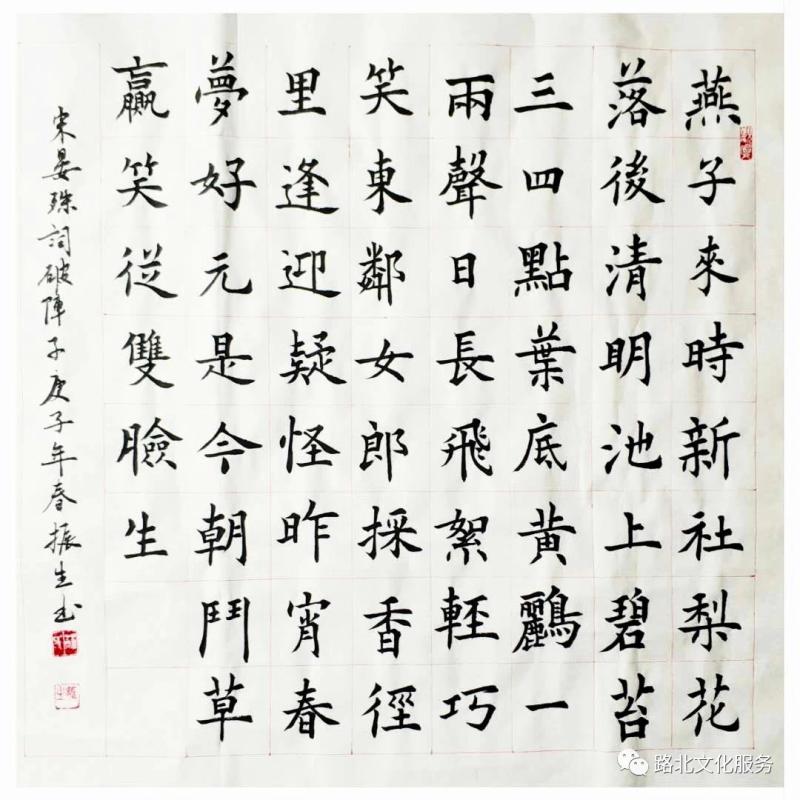 燕子來時新社梨花
落後清明池上碧苔
三四點葉底黃鸝一
兩聲日長飛絮輕巧
笑東鄰女郎採香徑
里逢迎疑怪昨宵春
夢好元是今朝鬥草
贏笑從雙臉生
宋晏殊詞破陣子庚子年春振生书
路北文化服务